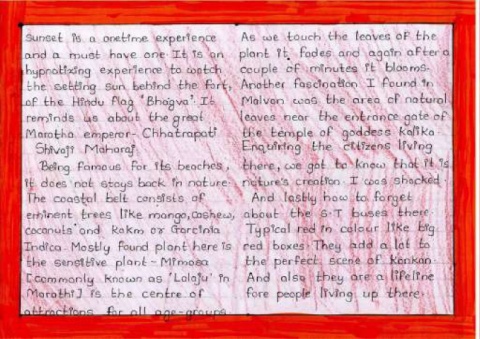 Sunset is a onetime experience
and a must have one. It is an
hypnotizing experience to watch
the setting sun behind the fort,
of the Hindu flag 'Bhagva'. It
reminds us about the great
Maratha emperor- Chhatrapati
Shivaji Maharaj
Being famous for its beaches,
it does not stays back in nature.
The coastal belt consists of
eminent trees like mango, cashew,
coconuts and kokm or Garcinia
Indica. Mostly found plant here is
the sensitive plant - Mimosa
[commonly known as 'Lalaju' in
Marathi] is the centre of
attractions for all age-groups
As we touch the leaves of the
plant it fades and again after a
couple of minutes it blooms.
Another fascination I found in
Malvan was the area of natural
leaves near the entrance gate of
the temple of goddess kalika.
Enquiring the citizens living
there, we got to know that it is
nature's creation. I was shocked.
And lastly how to forget
about the S.T buses there.
Typical red in colour like big
red boxes. They add a lot to
the perfect scene of konkan.
And also they are a lifeline
fore people living up there.